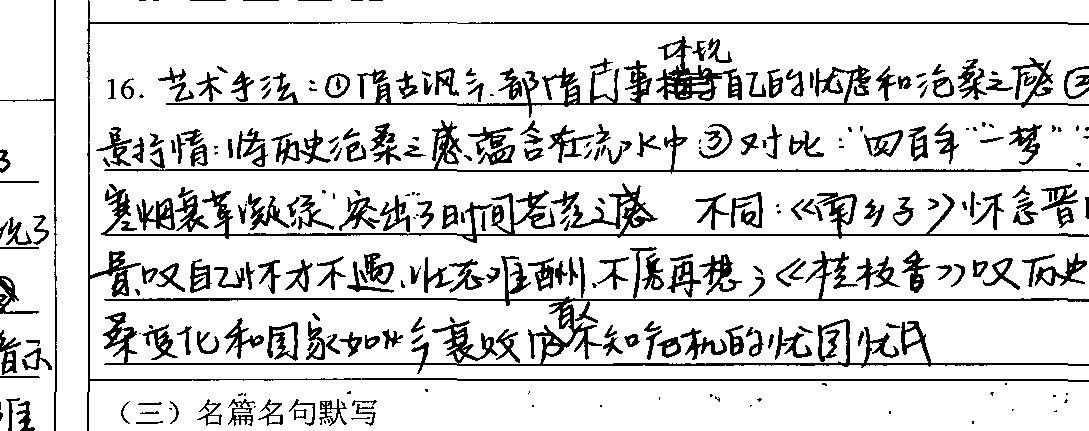 16. 艺术手法：①借古讽今.都借古事体现自己的忧虑和沧桑之感②
景抒情：将历史沧桑之感蕴含在流水中③对比："四百年""一梦"
寒烟衰草凝绿"突出了时间苍茫之感 不同：《南乡子》怀念晋
景叹自己怀才不遇,壮志难酬.不愿再想；《桂枝香》叹历史
桑变化和国家如今衰败百人不知危机的忧国忧民
（三）名篇名句默写